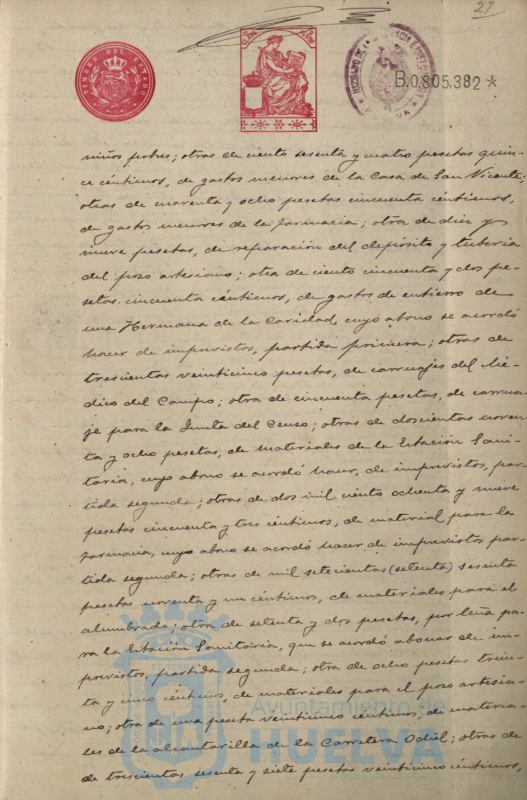 27
TIMBRE DEL ESTADO
B.0.805,382 *
niños pobres; otras de ciento sesenta y cuatro pesetas quin-
ce céntimos, de gastos menores de la Casa de San Vicente;
otras de cuarenta y ocho pesetas cincuenta céntimos,
de gastos menores de la farmacia; otra de diez y
nueve pesetas, de reparación del depósito y tubería
del pozo artesiano; otra de ciento cincuenta y dos pe-
setas cincuenta céntimos, de gastos de entierro de
una Hermana de la Caridad, cuyo abono se acordó
hacer de imprevistos, partida primera; otras de
trescientas veinticinco pesetas, de carruajes del Mé-
dico del Campo; otra de cincuenta pesetas, de carrua-
je para la Junta del Censo; otras de doscientas noven-
ta y ocho pesetas, de materiales de la Estación Sani-
taria, cuyo abono se acordó hacer, de imprevistos, par-
tida segunda; otras de dos mil ciento ochenta y nueve
pesetas cincuenta y tres céntimos, de material para la
farmacia, cuyo abono se acordó hacer de imprevistos par-
tida segunda; otras de mil setecientas (setenta) sesenta
pesetas noventa y un céntimos, de materiales para el
alumbrado; otra de setenta y dos pesetas, por leña pa-
ra la Estación Sanitaria, que se acordó abonar de im-
previstos, partida segunda; otra de ocho pesetas trein-
ta y cinco céntimos, de materiales para el pozo artesia-
no; otra de una peseta veinticinco céntimos, de materia-
les de la alcantarilla de la Carretera Odiel; otras de
de trescientas sesenta y siete pesetas veinticinco céntimos,
Ayuntamiento de
HUELVA